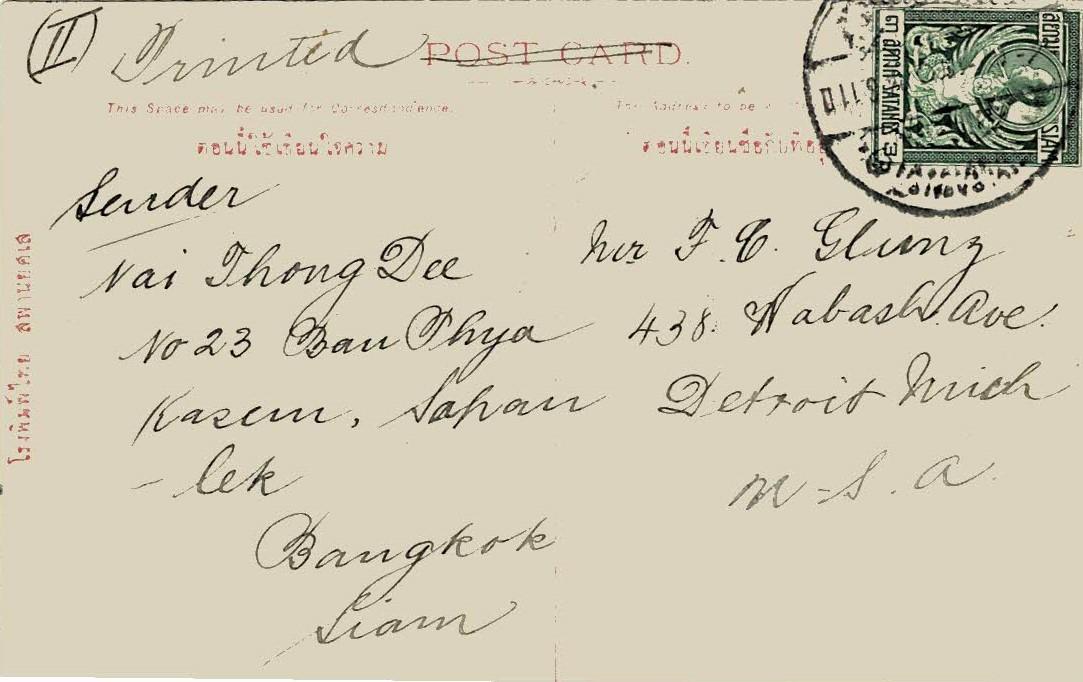 (II) Printed
POST CARD.
This Space may be used for Correspondence.
The Address to be
ตอนนี้ใช้เขียนใจความ
ตอนนี้เขียนชื่อกับที่อยู่
สยาม
SIAM
๓ สตางค์ SATANG 3
Sender
Nai Thong Dee
No 23 Bau Phya
Kasem, Sapan
- lek
Bangkok
Siam
Mr F. C. Glunz
438 Wabash. Ave.
Detroit Mich
U-S. A.
โรงพิมพ์ไทย สพานยศเส